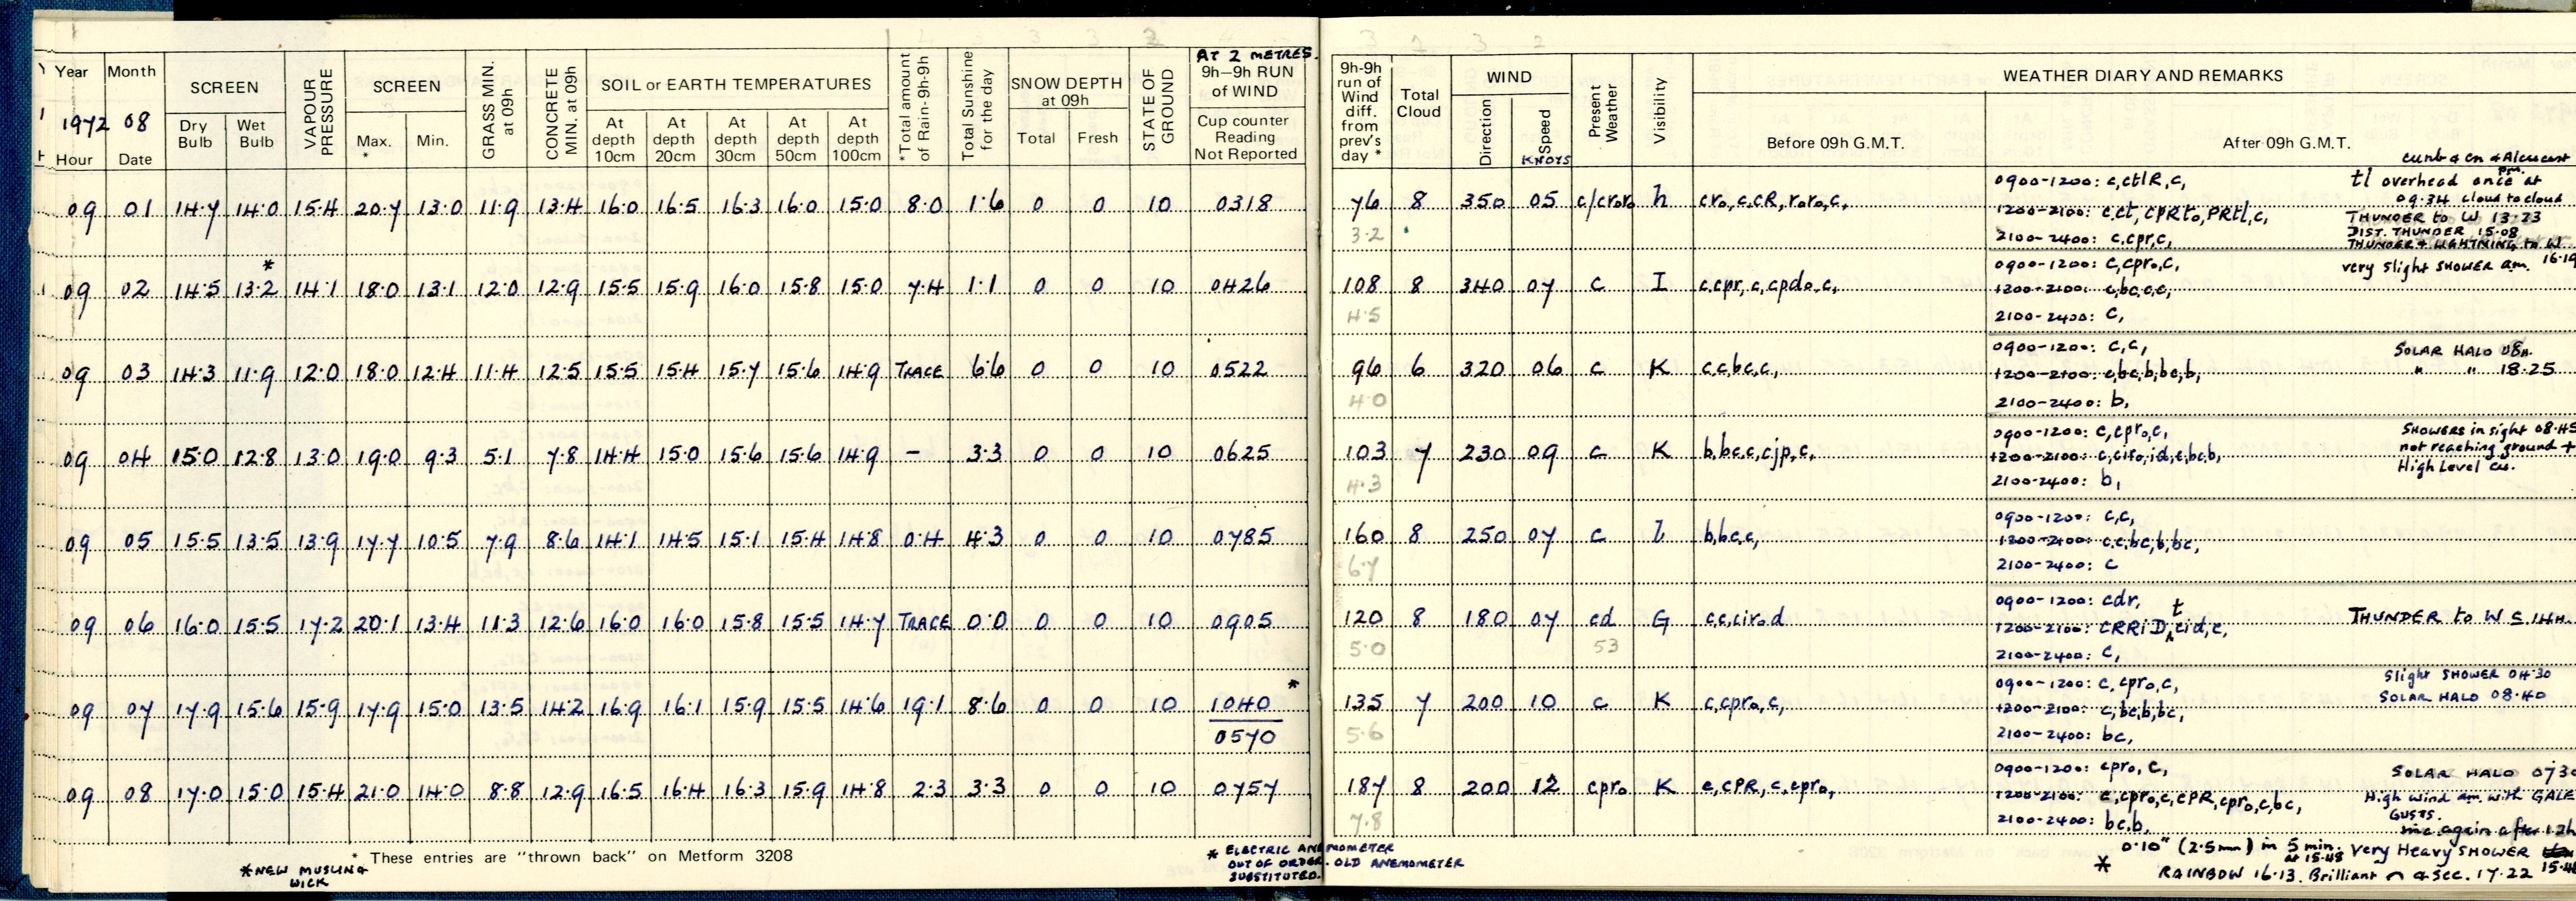 Year Month SCREEN VAPOUR PRESSURE SCREEN GRASS MIN. at 09h CONCRETE MIN. at 09h SOIL or EARTH TEMPERATURES *Total amount of Rain-9h-9h Total Sunshine for the day SNOW DEPTH at 09h STATE OF GROUND AT 2 METRES. 9h-9h RUN of WIND 9h-9h run of Wind diff. from prev's day * Total Cloud WIND Present Weather Visibility WEATHER DIARY AND REMARKS
1972 08 Dry Bulb Wet Bulb Max. * Min. At depth 10cm At depth 20cm At depth 30cm At depth 50cm At depth 100cm Total Fresh Cup counter Reading Not Reported Direction Speed KNOTS Before 09h G.M.T. After 09h G.M.T.
Hour Date
cunb & cn & Alcucast
09 01 14.7 14.0 15.4 20.7 13.0 11.9 13.4 16.0 16.5 16.3 16.0 15.0 8.0 1.6 0 0 10 0318 76 8 350 05 c/croro h cro,c,cR,roro,c, 0900-1200: c,ctlR,c, tl overhead once at pm.
09.34 cloud to cloud
3.2 1200-2100: c,ct,cPRto,PRtl,c, THUNDER to W 13.23
DIST. THUNDER 15.08
2100-2400: c,cpr,c, THUNDER & LIGHTNING to W 16.19
*
09 02 14.5 13.2 14.1 18.0 13.1 12.0 12.9 15.5 15.9 16.0 15.8 15.0 7.4 1.1 0 0 10 0426 108 8 340 07 c I c,cpr,c,cpdo,c, 0900-1200: c,cpro,c, very slight SHOWER am.
4.5 1200-2100: c,bc,c,c,
2100-2400: c,
09 03 14.3 11.9 12.0 18.0 12.4 11.4 12.5 15.5 15.4 15.7 15.6 14.9 TRACE 6.6 0 0 10 0522 96 6 320 06 c K c,c,bc,c, 0900-1200: c,c, SOLAR HALO 08H.
4.0 1200-2100: c,bc,b,bc,b, " " 18.25
2100-2400: b,
09 04 15.0 12.8 13.0 19.0 9.3 5.1 7.8 14.4 15.0 15.6 15.6 14.9 - 3.3 0 0 10 0625 103 7 230 09 c K b,bc,c,cjp,c, 0900-1200: c,cpro,c, SHOWERS in sight 08.45
4.3 1200-2100: c,ciro,id,c,bc,b, not reaching ground +
2100-2400: b, High Level cu.
09 05 15.5 13.5 13.9 17.7 10.5 7.9 8.6 14.1 14.5 15.1 15.4 14.8 0.4 4.3 0 0 10 0785 160 8 250 07 c b,bc,c, 0900-1200: c,c,
6.7 1200-2100: c,c,bc,b,bc,
2100-2400: c
09 06 16.0 15.5 17.2 20.1 13.4 11.3 12.6 16.0 16.0 15.8 15.5 14.7 TRACE 0.0 0 0 10 0905 120 8 180 07 cd G c,c,ciro,d 0900-1200: cdr, THUNDER to W C.14H.
5.0 53 1200-2100: CRRiD,tcid,c,
2100-2400: c,
09 07 17.9 15.6 15.9 17.9 15.0 13.5 14.2 16.9 16.1 15.9 15.5 14.6 19.1 8.6 0 0 10 1040 * 135 7 200 10 c K c,cpro,c, 0900-1200: c,cpro,c, Slight SHOWER 04.30
0570 5.6 1200-2100: c,bc,b,bc, SOLAR HALO 08.40
2100-2400: bc,
09 08 17.0 15.0 15.4 21.0 14.0 8.8 12.9 16.5 16.4 16.3 15.9 14.8 2.3 3.3 0 0 10 0757 187 8 200 12 cpro K c,cPR,c,cpro, 0900-1200: cpro,c, SOLAR HALO 0730
7.8 1200-2100: c,cpro,c,cPR,cpro,c,bc, High wind am. with GALE
2100-2400: bc,b, GUSTS.
again after 12h
* These entries are "thrown back" on Metform 3208
*NEW MUSLIN & WICK
* ELECTRIC ANEMOMETER
OUT OF ORDER. OLD ANEMOMETER
SUBSTITUTED.
0.10" (2.5mm) in 5 min. at 15.48 Very Heavy SHOWER
* RAINBOW 16.13. Brilliant & Sec. 17.22